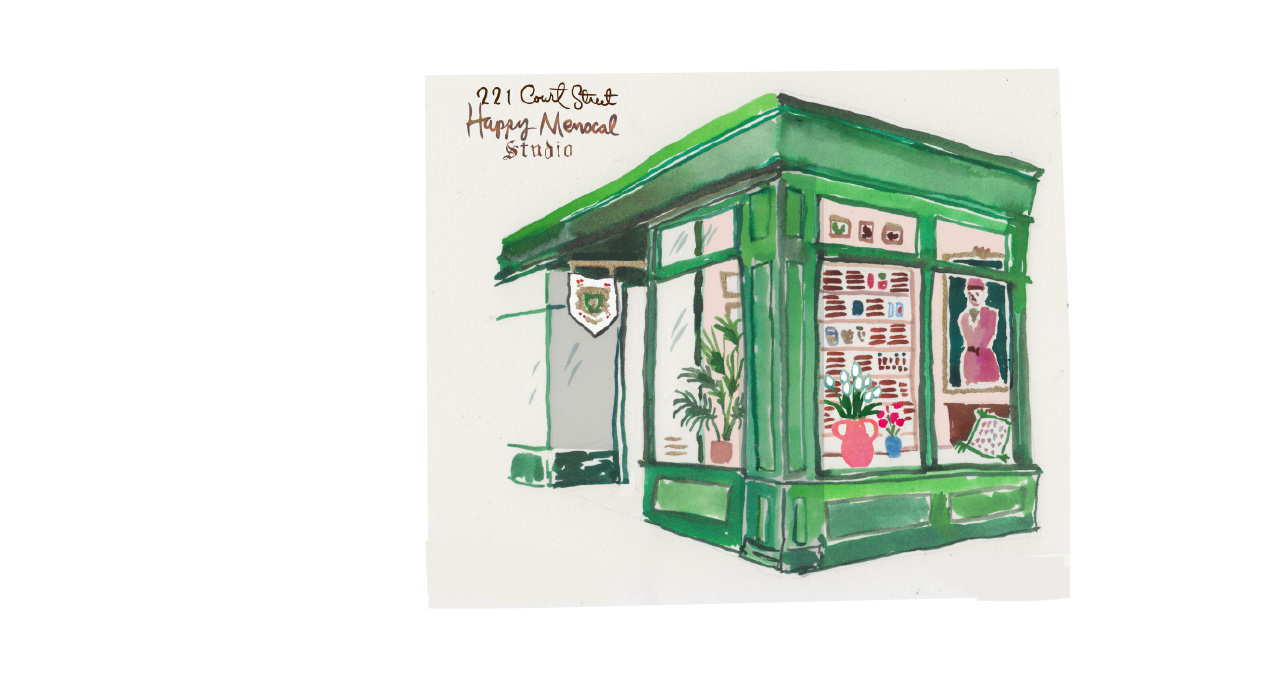 221 Court Street
Happy Menocal
Studio